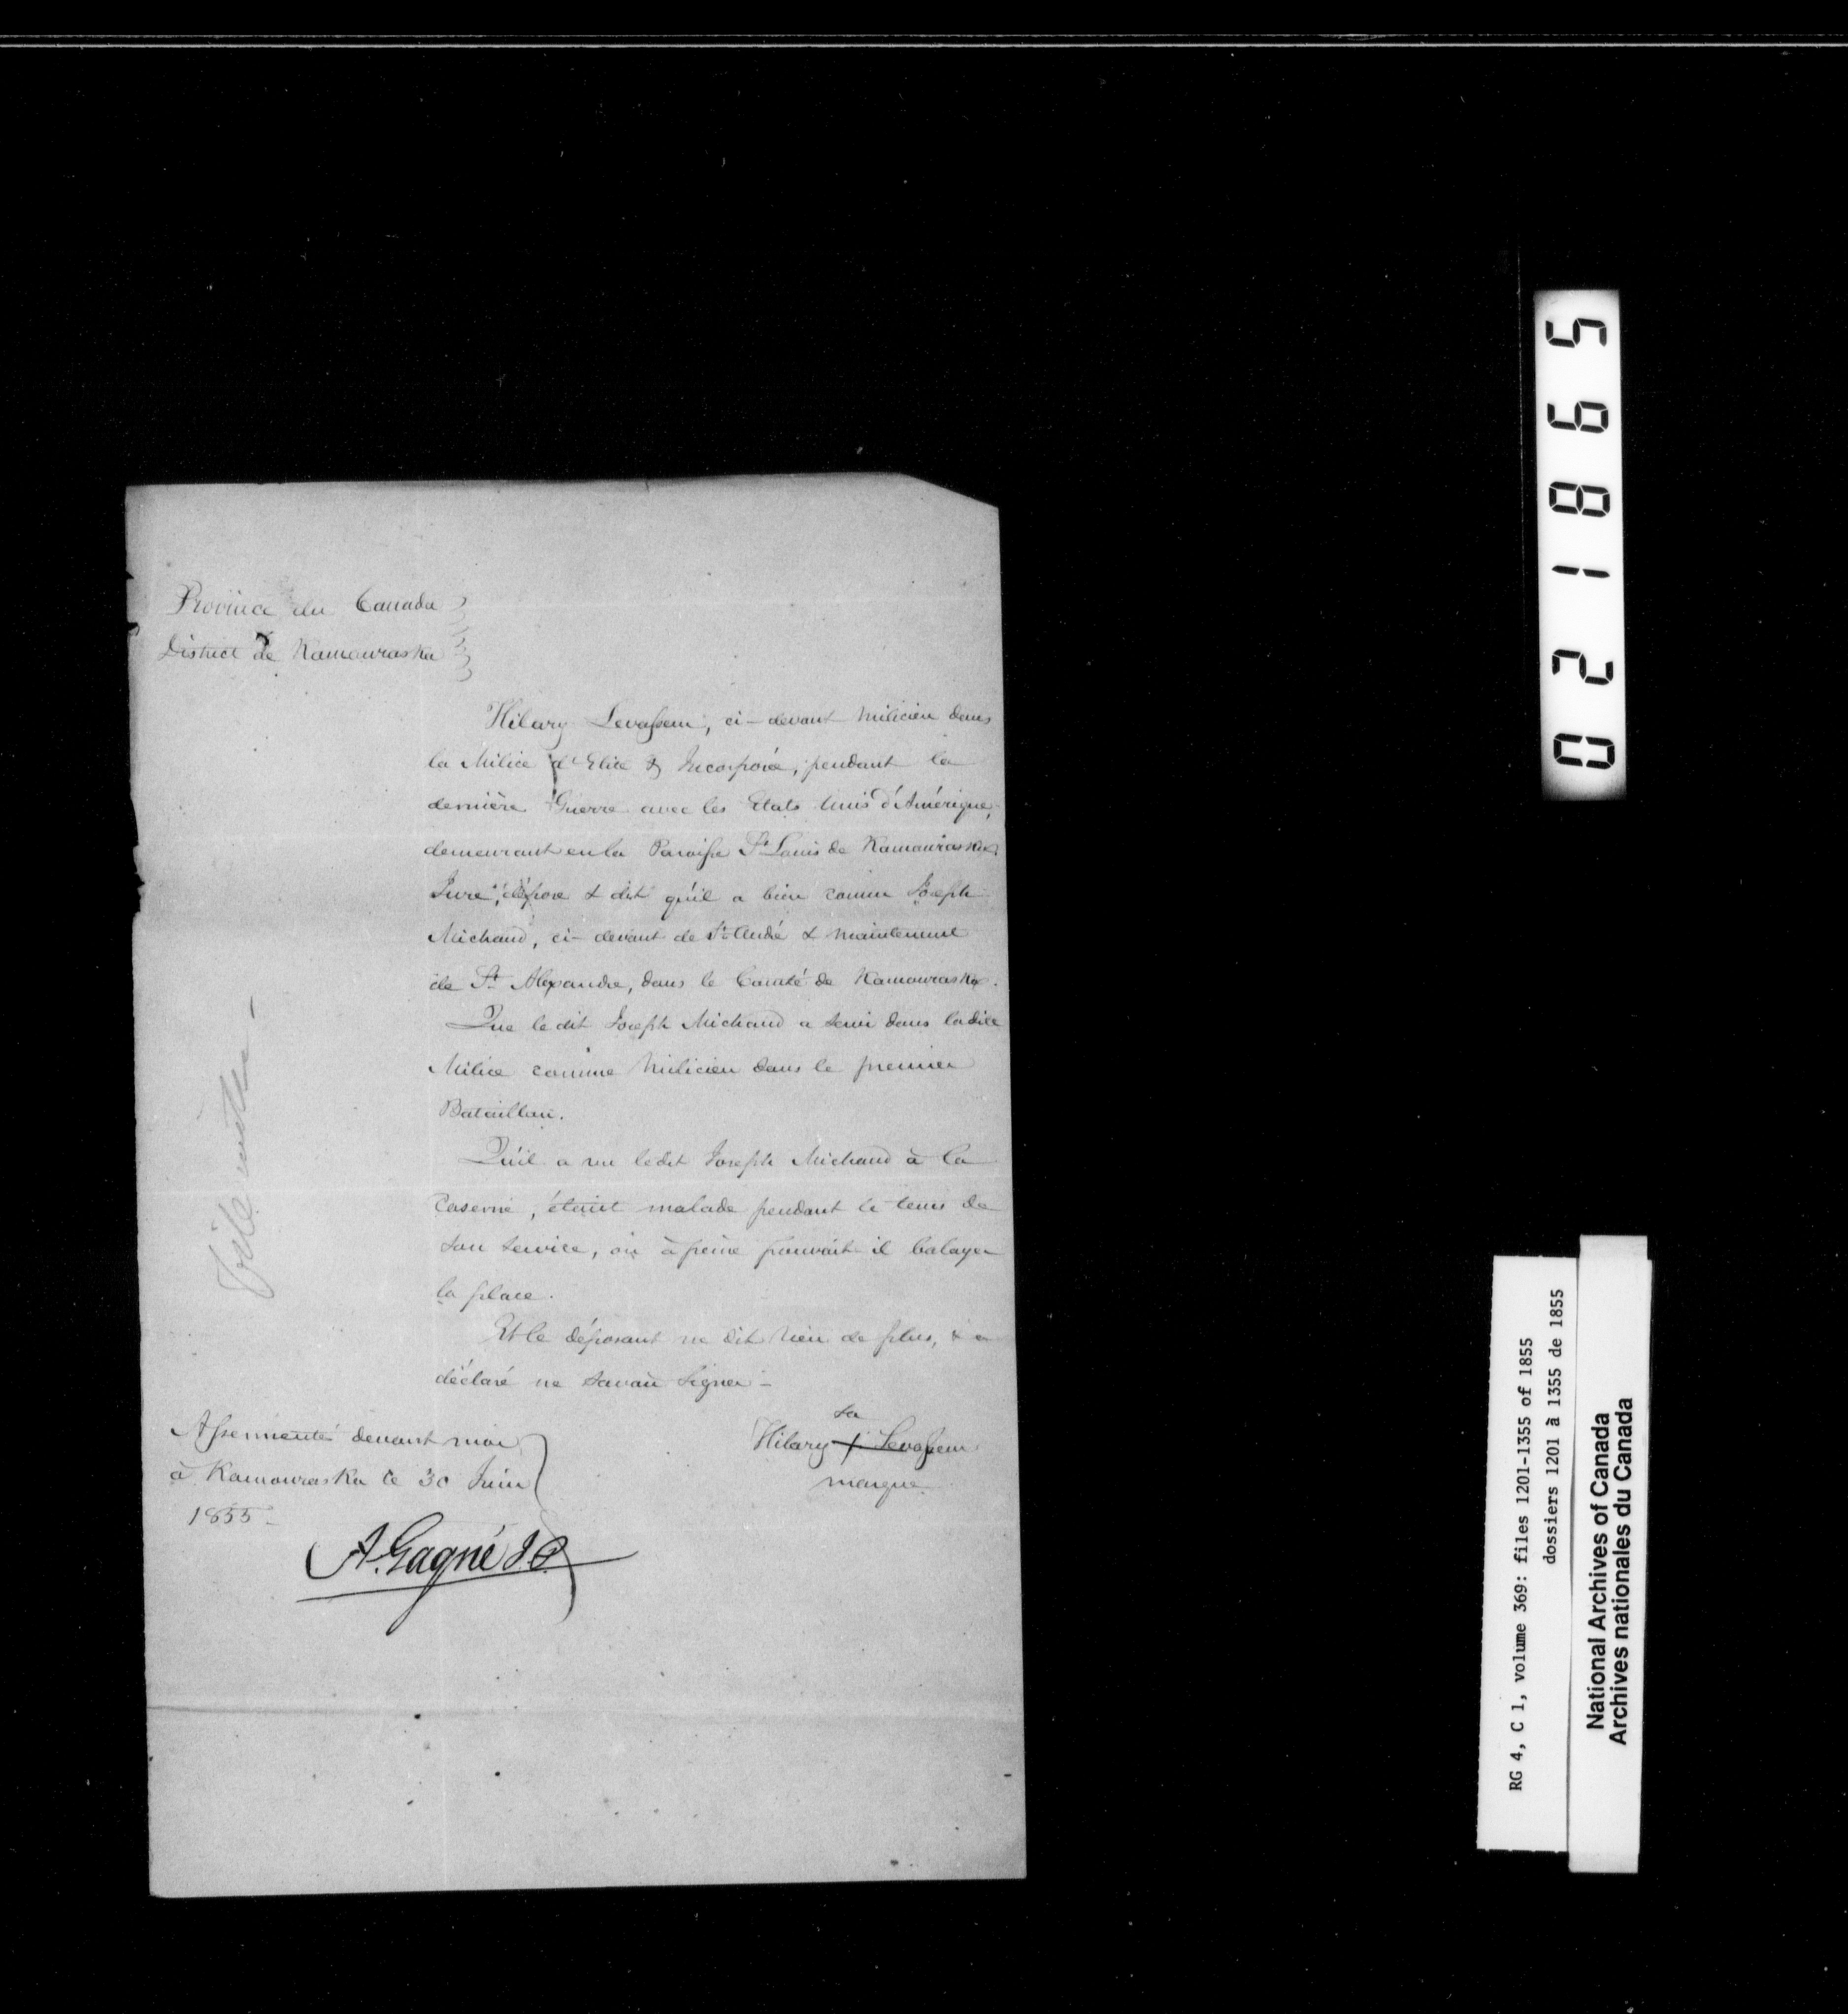 Province du Canada
District de Kamouraska
Hilary Levasseur, ci-devant Milicien dans
la Milice d'Elite & Incorporée, pendant la
dernière Guerre avec les Etats Unis d'Amérique,
demeurant en la Paroisse St Louis de Kamouraska
Juré, dépose & dit qu'il a bien connu Joseph
Michaud, ci-devant de St André & maintenant
de St Alexandre, dans le Comté de Kamouraska.
Que le dit Joseph Michaud a servi dans la dite
Milice comme Milicien dans le premier
Bataillon.
Qu'il a vu le dit Joseph Michaud à la
Caserne, étant malade pendant le tems de
son service, où à peine pouvait il balayer
la place.
Et le déposant ne dit rien de plus, & a
déclaré ne savoir signer -
Assermenté devant moi
à Kamouraska le 30 Juin
1855 -
sa
Hilary + Levasseur
marque
A. Gagné J.P.
021865
RG 4, C 1, volume 369: files 1201-1355 of 1855
dossiers 1201 à 1355 de 1855
National Archives of Canada
Archives nationales du Canada